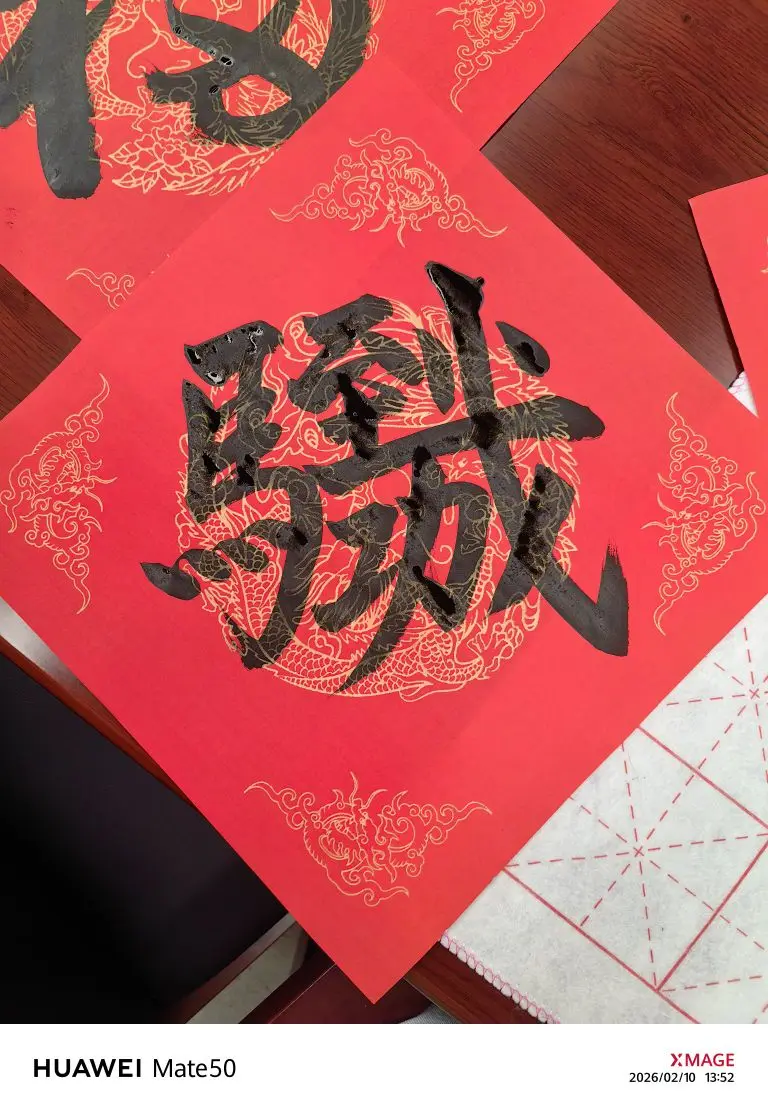 馬到成功
HUAWEI Mate50
XMAGE
2026/02/10 13:52